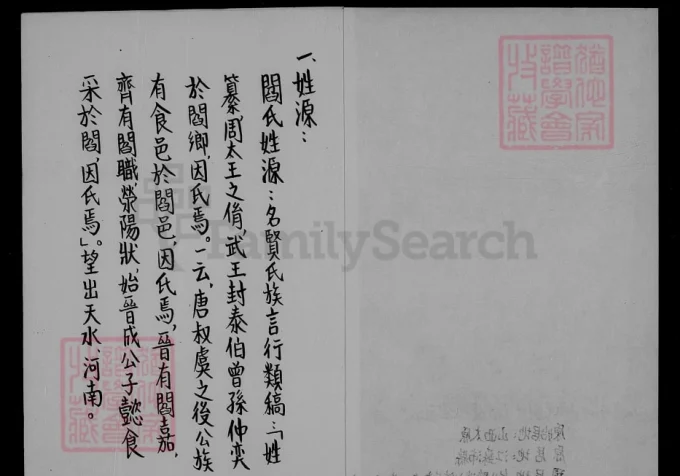 一、姓源：
閻氏姓源：名賢氏族言行類稿：「姓
纂，周太王之脩，武王封泰伯曾孫仲奕
於閻鄉，因氏焉。一云，唐叔虞之後公族
有食邑於閻邑，因氏焉，晉有閻嘉，
齊有閻職，滎陽狀，始晉成公子懿食
采於閻，因氏焉」。望出天水、河南。
FamilySearch